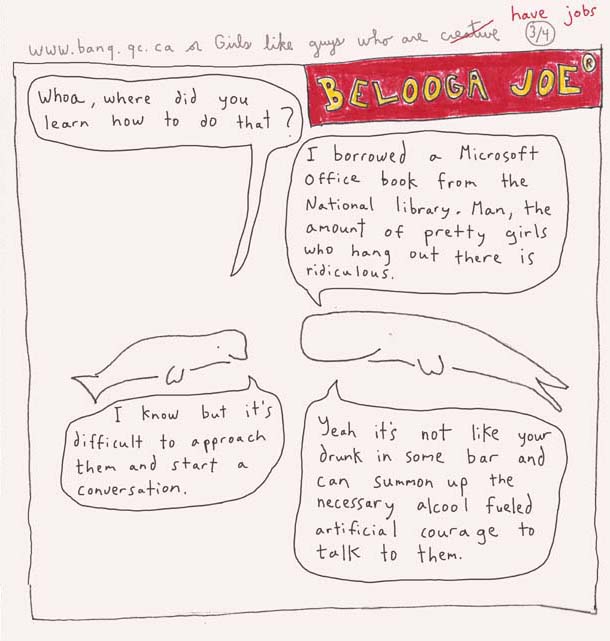 have jobs
www.banq.qc.ca or Girls like guys who are creative 3/4
BELOOGA JOE®
Whoa, where did you
learn how to do that?
I borrowed a Microsoft
Office book from the
National library. Man, the
amount of pretty girls
who hang out there is
ridiculous.
I know but it's
difficult to approach
them and start a
conversation.
Yeah it's not like your
drunk in some bar and
can summon up the
necessary alcool fueled
artificial courage to
talk to them.